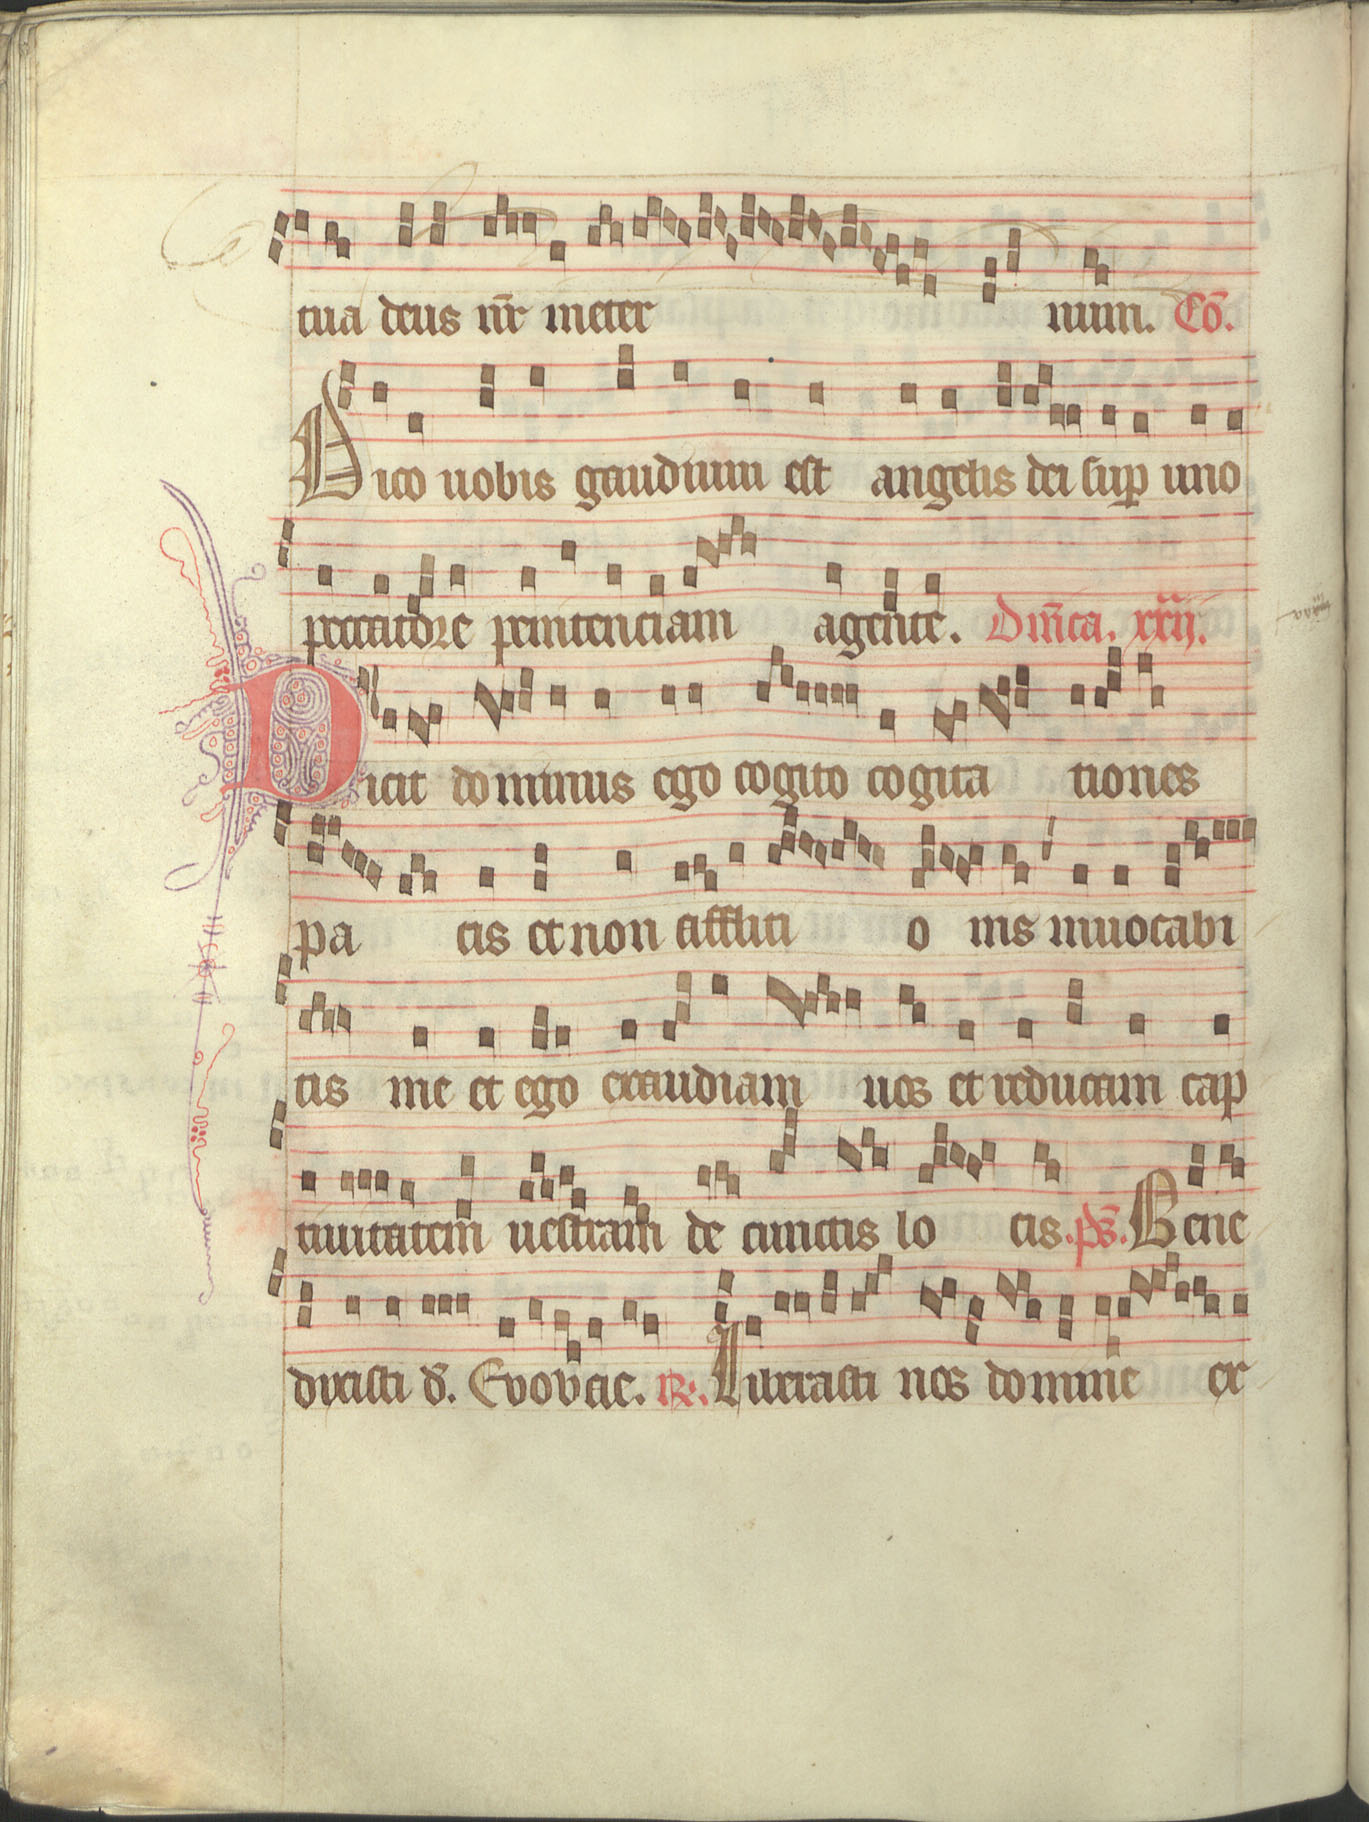 tua deus nr̄ in eter num. Cō.
Dico uobis gaudium est angelis dei sup uno
peccatore penitenciam agente. Dn̄ica. xxiij.
Dicit dominus ego cogito cogita tiones
pa cis et non afflicti o nis inuocabi
tis me et ego exaudiam uos et reducam cap
tiuitatem uestram de cunctis lo cis. ps̄. Bene
dixisti d̄. Evovae. R. Liberasti nos domine ex